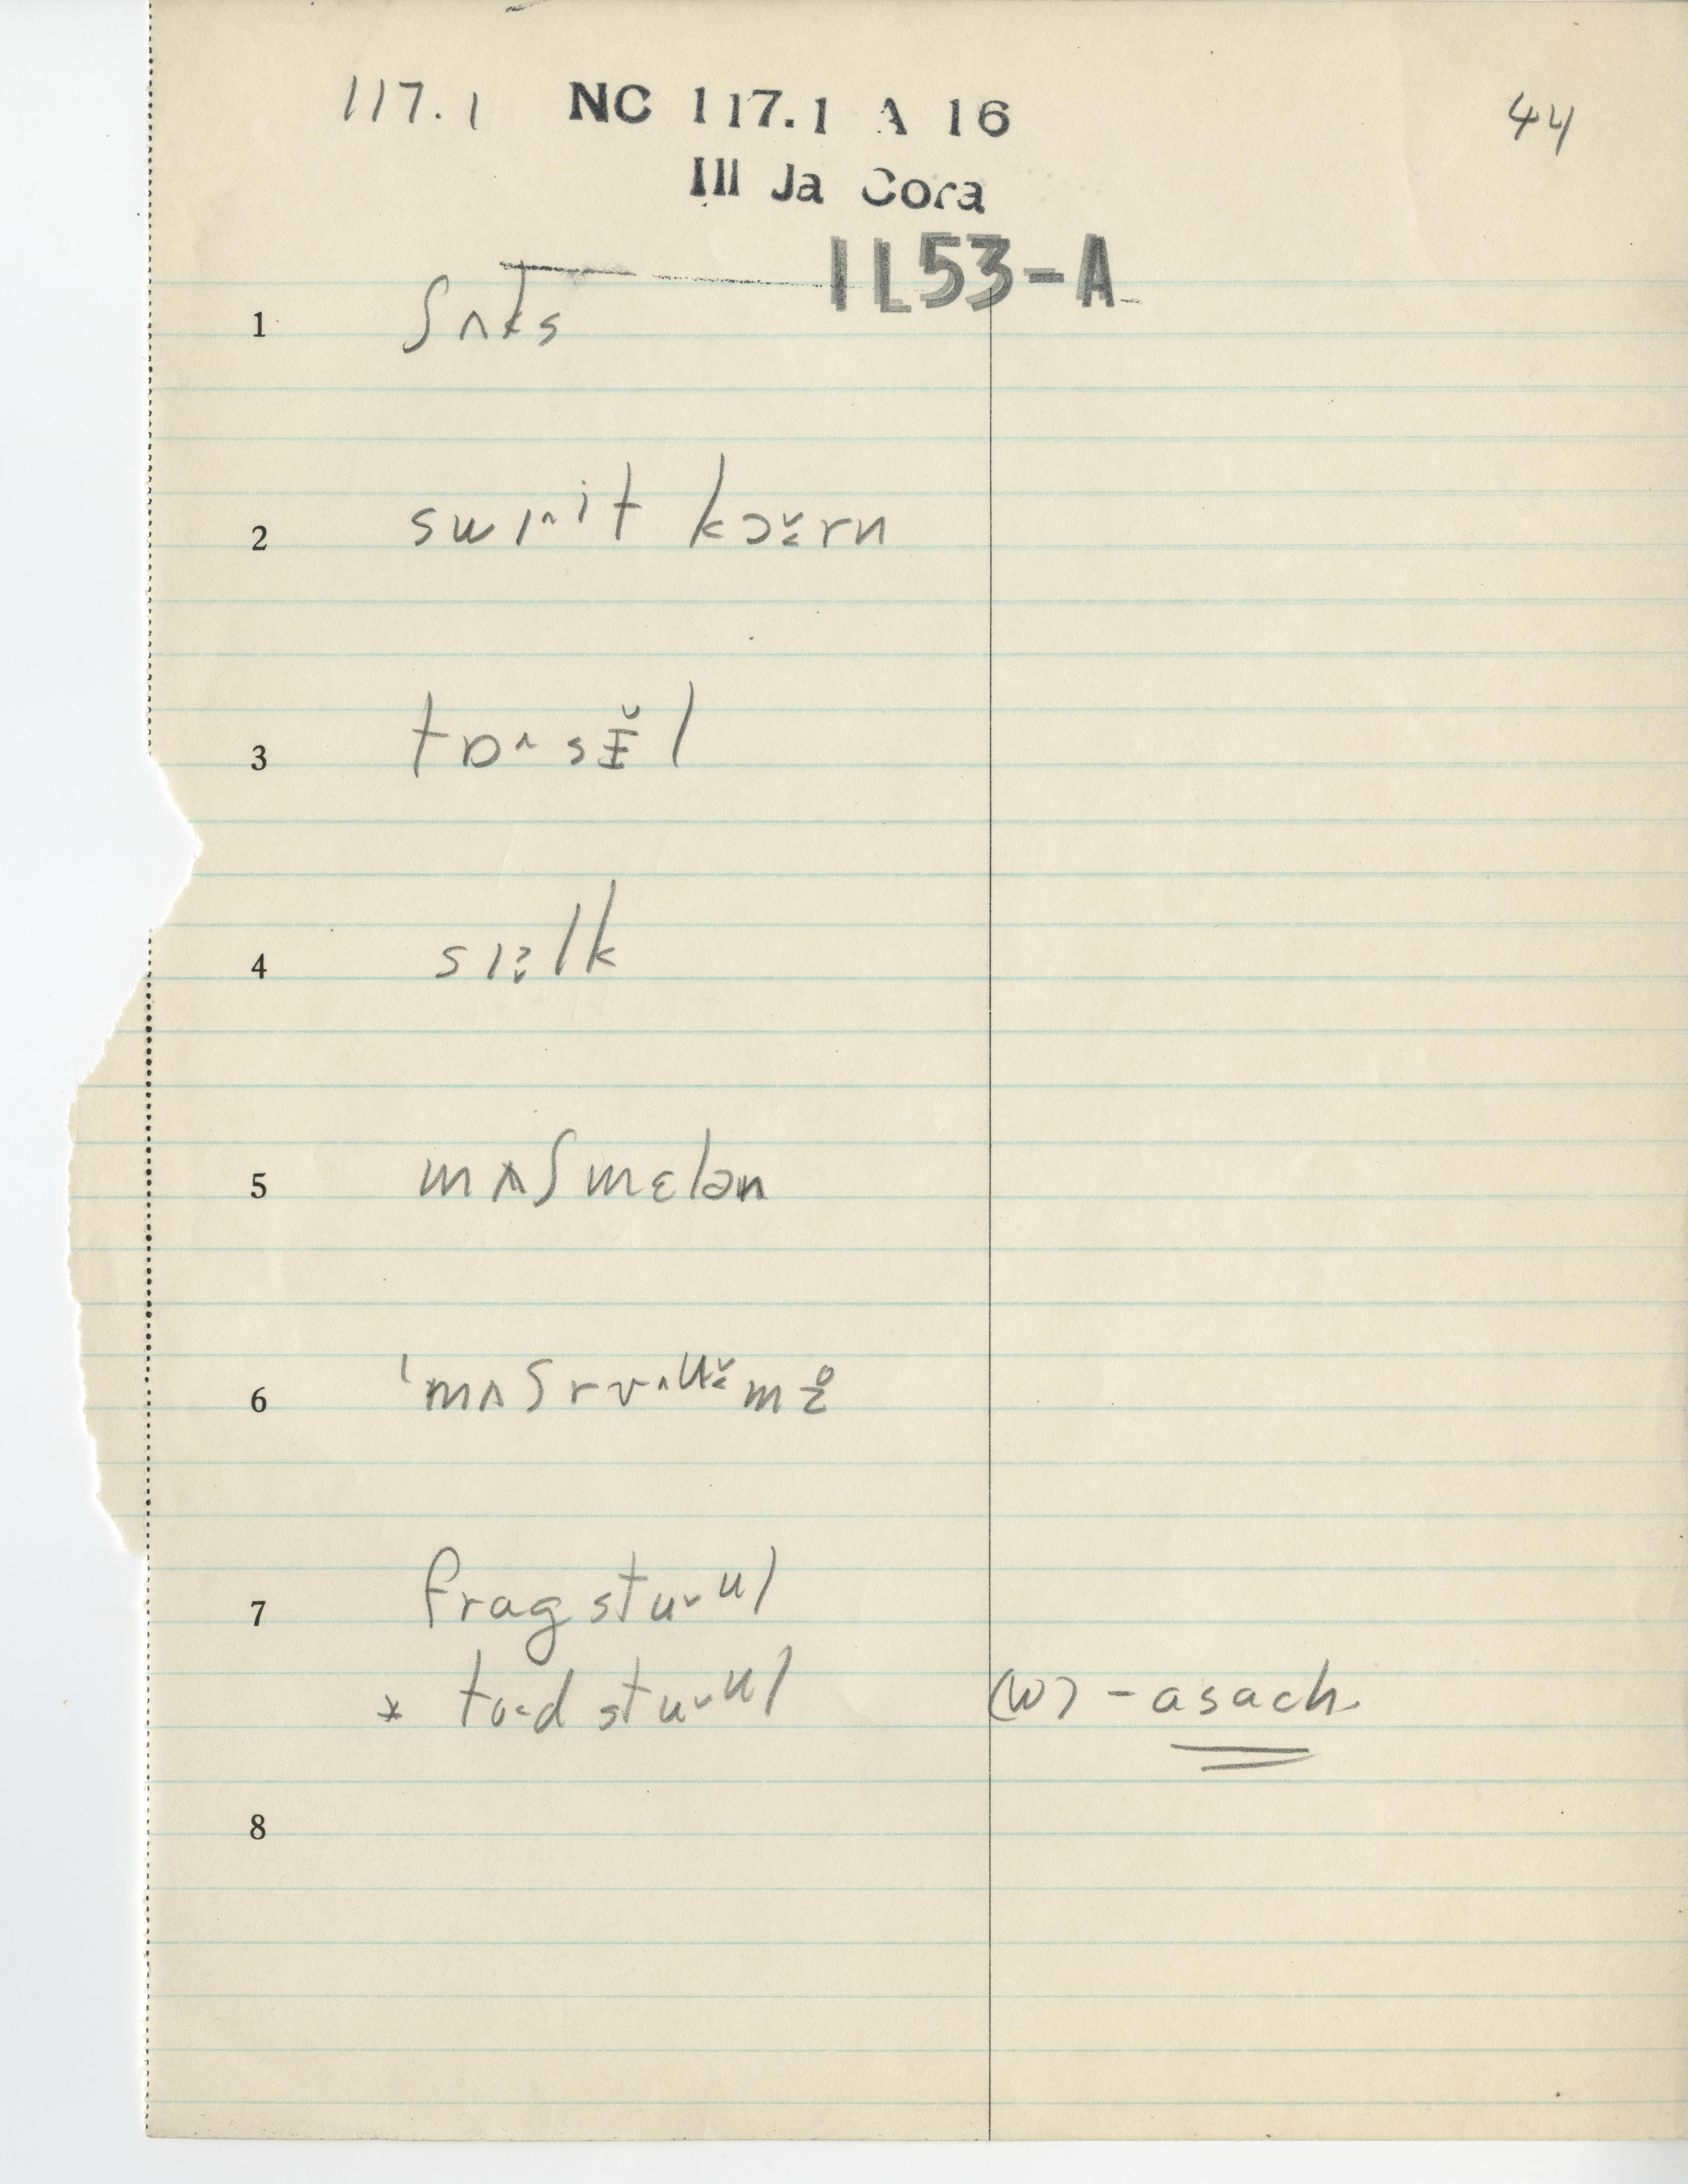 117.1 NC 117.1 A 16 44
Ill Ja Cora
1L53-A
1 ʃʌks
2 swɪ^it kɔ̌rn
3 tɒ^sɪ̌l
4 sɪlk
5 mʌʃmɛlən
6 ˈmʌʃrʊ^ʉ̌m
7 fragstu˅ul
* to<d stu˅ul (W) - asach
8